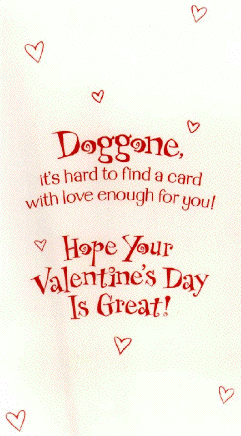 Doggone,
it's hard to find a card
with love enough for you!
Hope Your
Valentine's Day
Is Great!